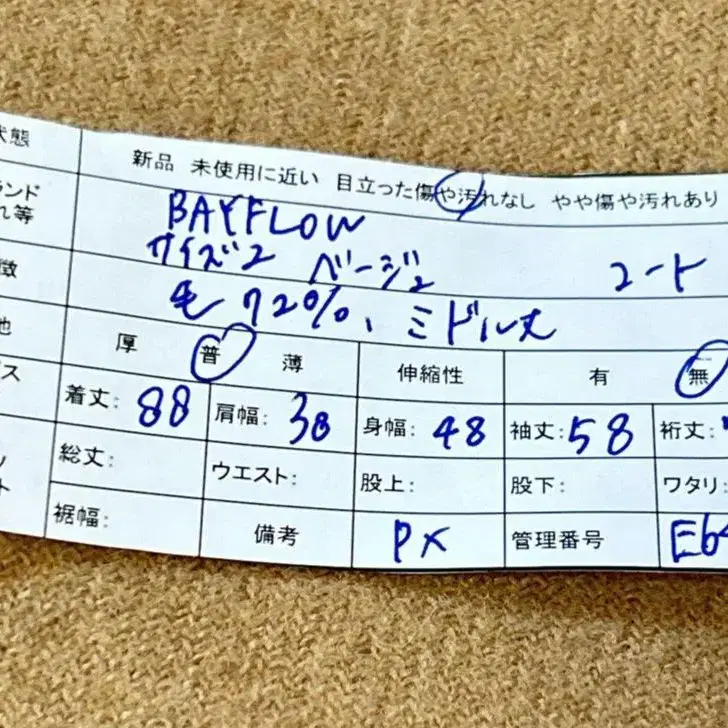 状態 新品 未使用に近い 目立った傷や汚れなし やや傷や汚れあり
ランド
れ等 BAYFLOW
サイズ2 ベージュ コート
徴 毛72%、ミドル丈
地 厚 普 薄 伸縮性 有 無
着丈: 88 肩幅: 38 身幅: 48 袖丈: 58 裄丈:
総丈: ウエスト: 股上: 股下: ワタリ:
裾幅: 備考 PX 管理番号 E64